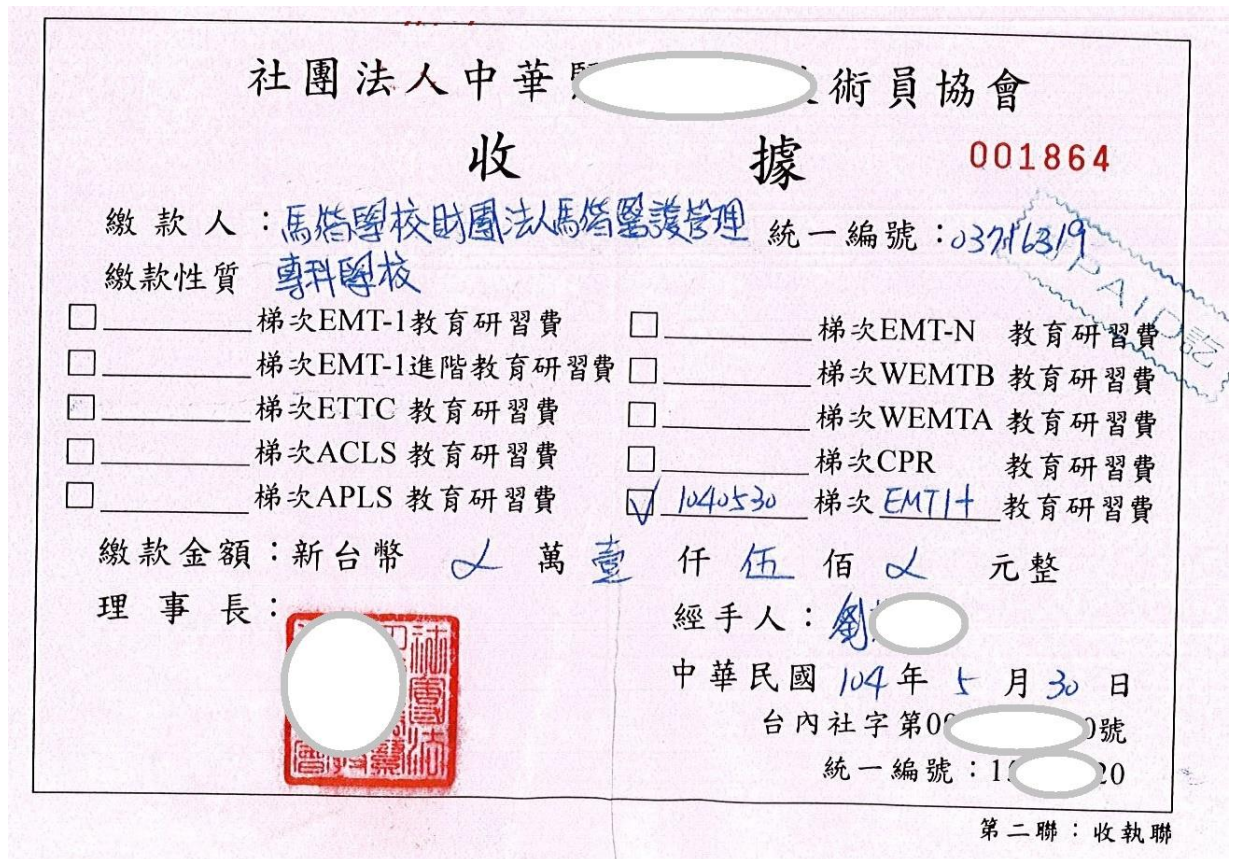 社團法人中華 術員協會
收 據 001864
繳款人：馬偕學校財團法人馬偕醫護管理 統一編號：
繳款性質 專科學校
PAID
□________梯次EMT-1教育研習費 □________梯次EMT-N 教育研習費
□________梯次EMT-1進階教育研習費 □________梯次WEMTB 教育研習費
□________梯次ETTC 教育研習費 □________梯次WEMTA 教育研習費
□________梯次ACLS 教育研習費 □________梯次CPR 教育研習費
□________梯次APLS 教育研習費 ☑1040530梯次EMT1+教育研習費
繳款金額：新台幣 萬 壹 仟 伍 佰 元整
理事長： 經手人：劉
中華民國 104 年 5 月 30 日
台內社字第0 號
統一編號：1 20
第二聯：收執聯